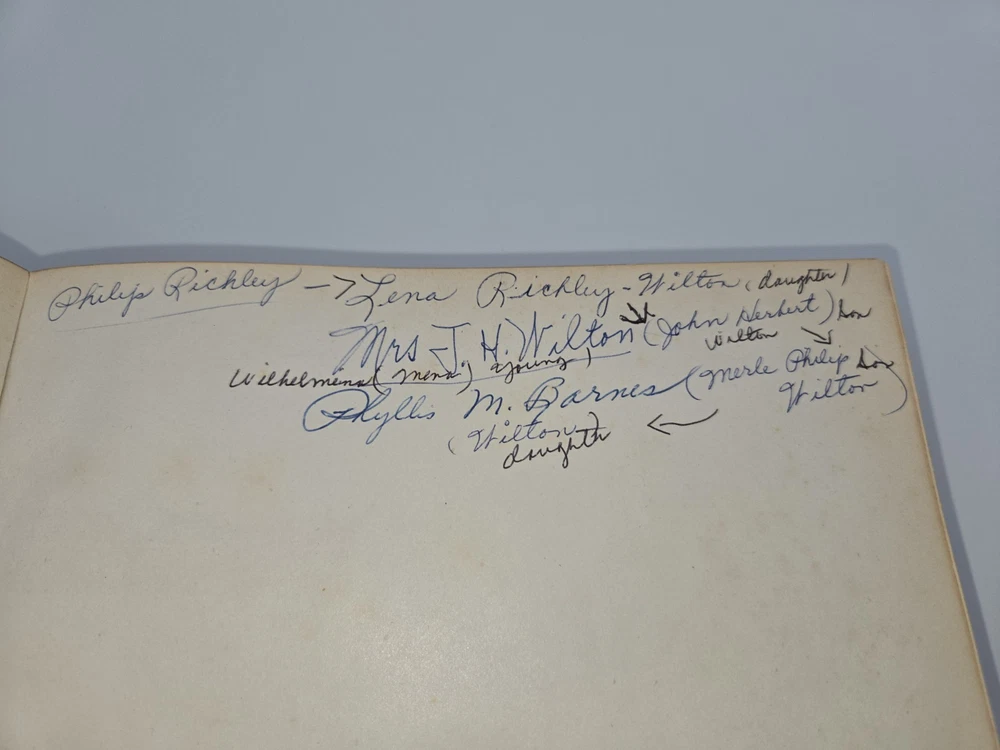 Philip Richley → Lena Richley - Wilton (daughter)
Mrs J. H. Wilton (John Herbert) son
Wilton
Wilhelmena (Mena) Young)
Phyllis M. Barnes (Merle Philip son
Wilton)
(Wilton) ←
daughter